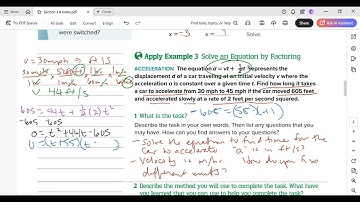 Section 1.4 notes.pdf
were switched?
x = -3/8
x = 7
Apply Example 3 Solve an Equation by Factoring
ACCELERATION The equation d = vt + 1/2 at² represents the
displacement d of a car traveling at an initial velocity v where the
acceleration a is constant over a given time t. Find how long it takes
a car to accelerate from 30 mph to 45 mph if the car moved 605 feet
and accelerated slowly at a rate of 2 feet per second squared.
V = 30mph → ft/s
V 44 ft/s
605 = 44t + 1/2 (2) t²
-605 -605
0 = t² + 44t - 605
0 = (t + 55)(t -
-605 = (55)(-11)
1 What is the task?
Describe the task in your own words. Then list any questions that you
may have. How can you find answers to your questions?
- solve the equation to find time for the
car to accelerate "a" is in ft/s²
- velocity is m/hr How do you fix
different units?
2 Describe the method you will use to complete the task. What have
you learned that you can use to help you complete the task?